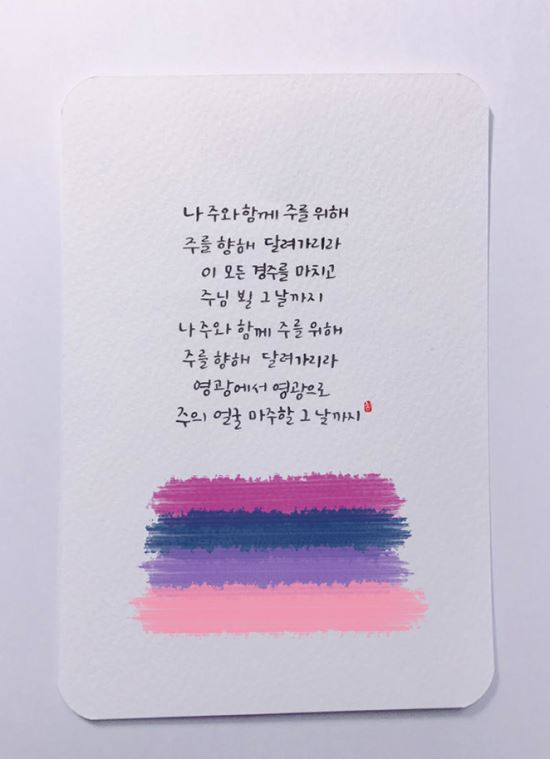 나 주와 함께 주를 위해
주를 향해 달려가리라
이 모든 경주를 마치고
주님 뵐 그 날까지
나 주와 함께 주를 위해
주를 향해 달려가리라
영광에서 영광으로
주의 얼굴 마주할 그 날까지